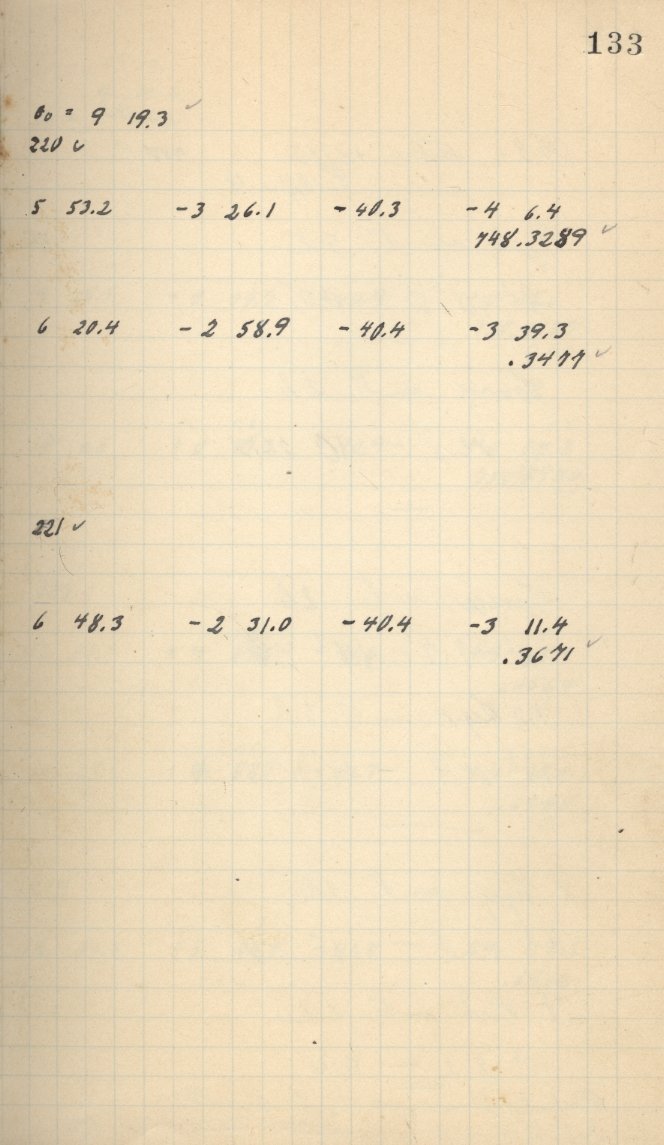 133
θ₀ = 9 19.3 ✓
220 ✓
5 53.2 -3 26.1 -40.3 -4 6.4
748.3289 ✓
6 20.4 -2 58.9 -40.4 -3 39.3
.3477 ✓
221 ✓
6 48.3 -2 31.0 -40.4 -3 11.4
.3671 ✓